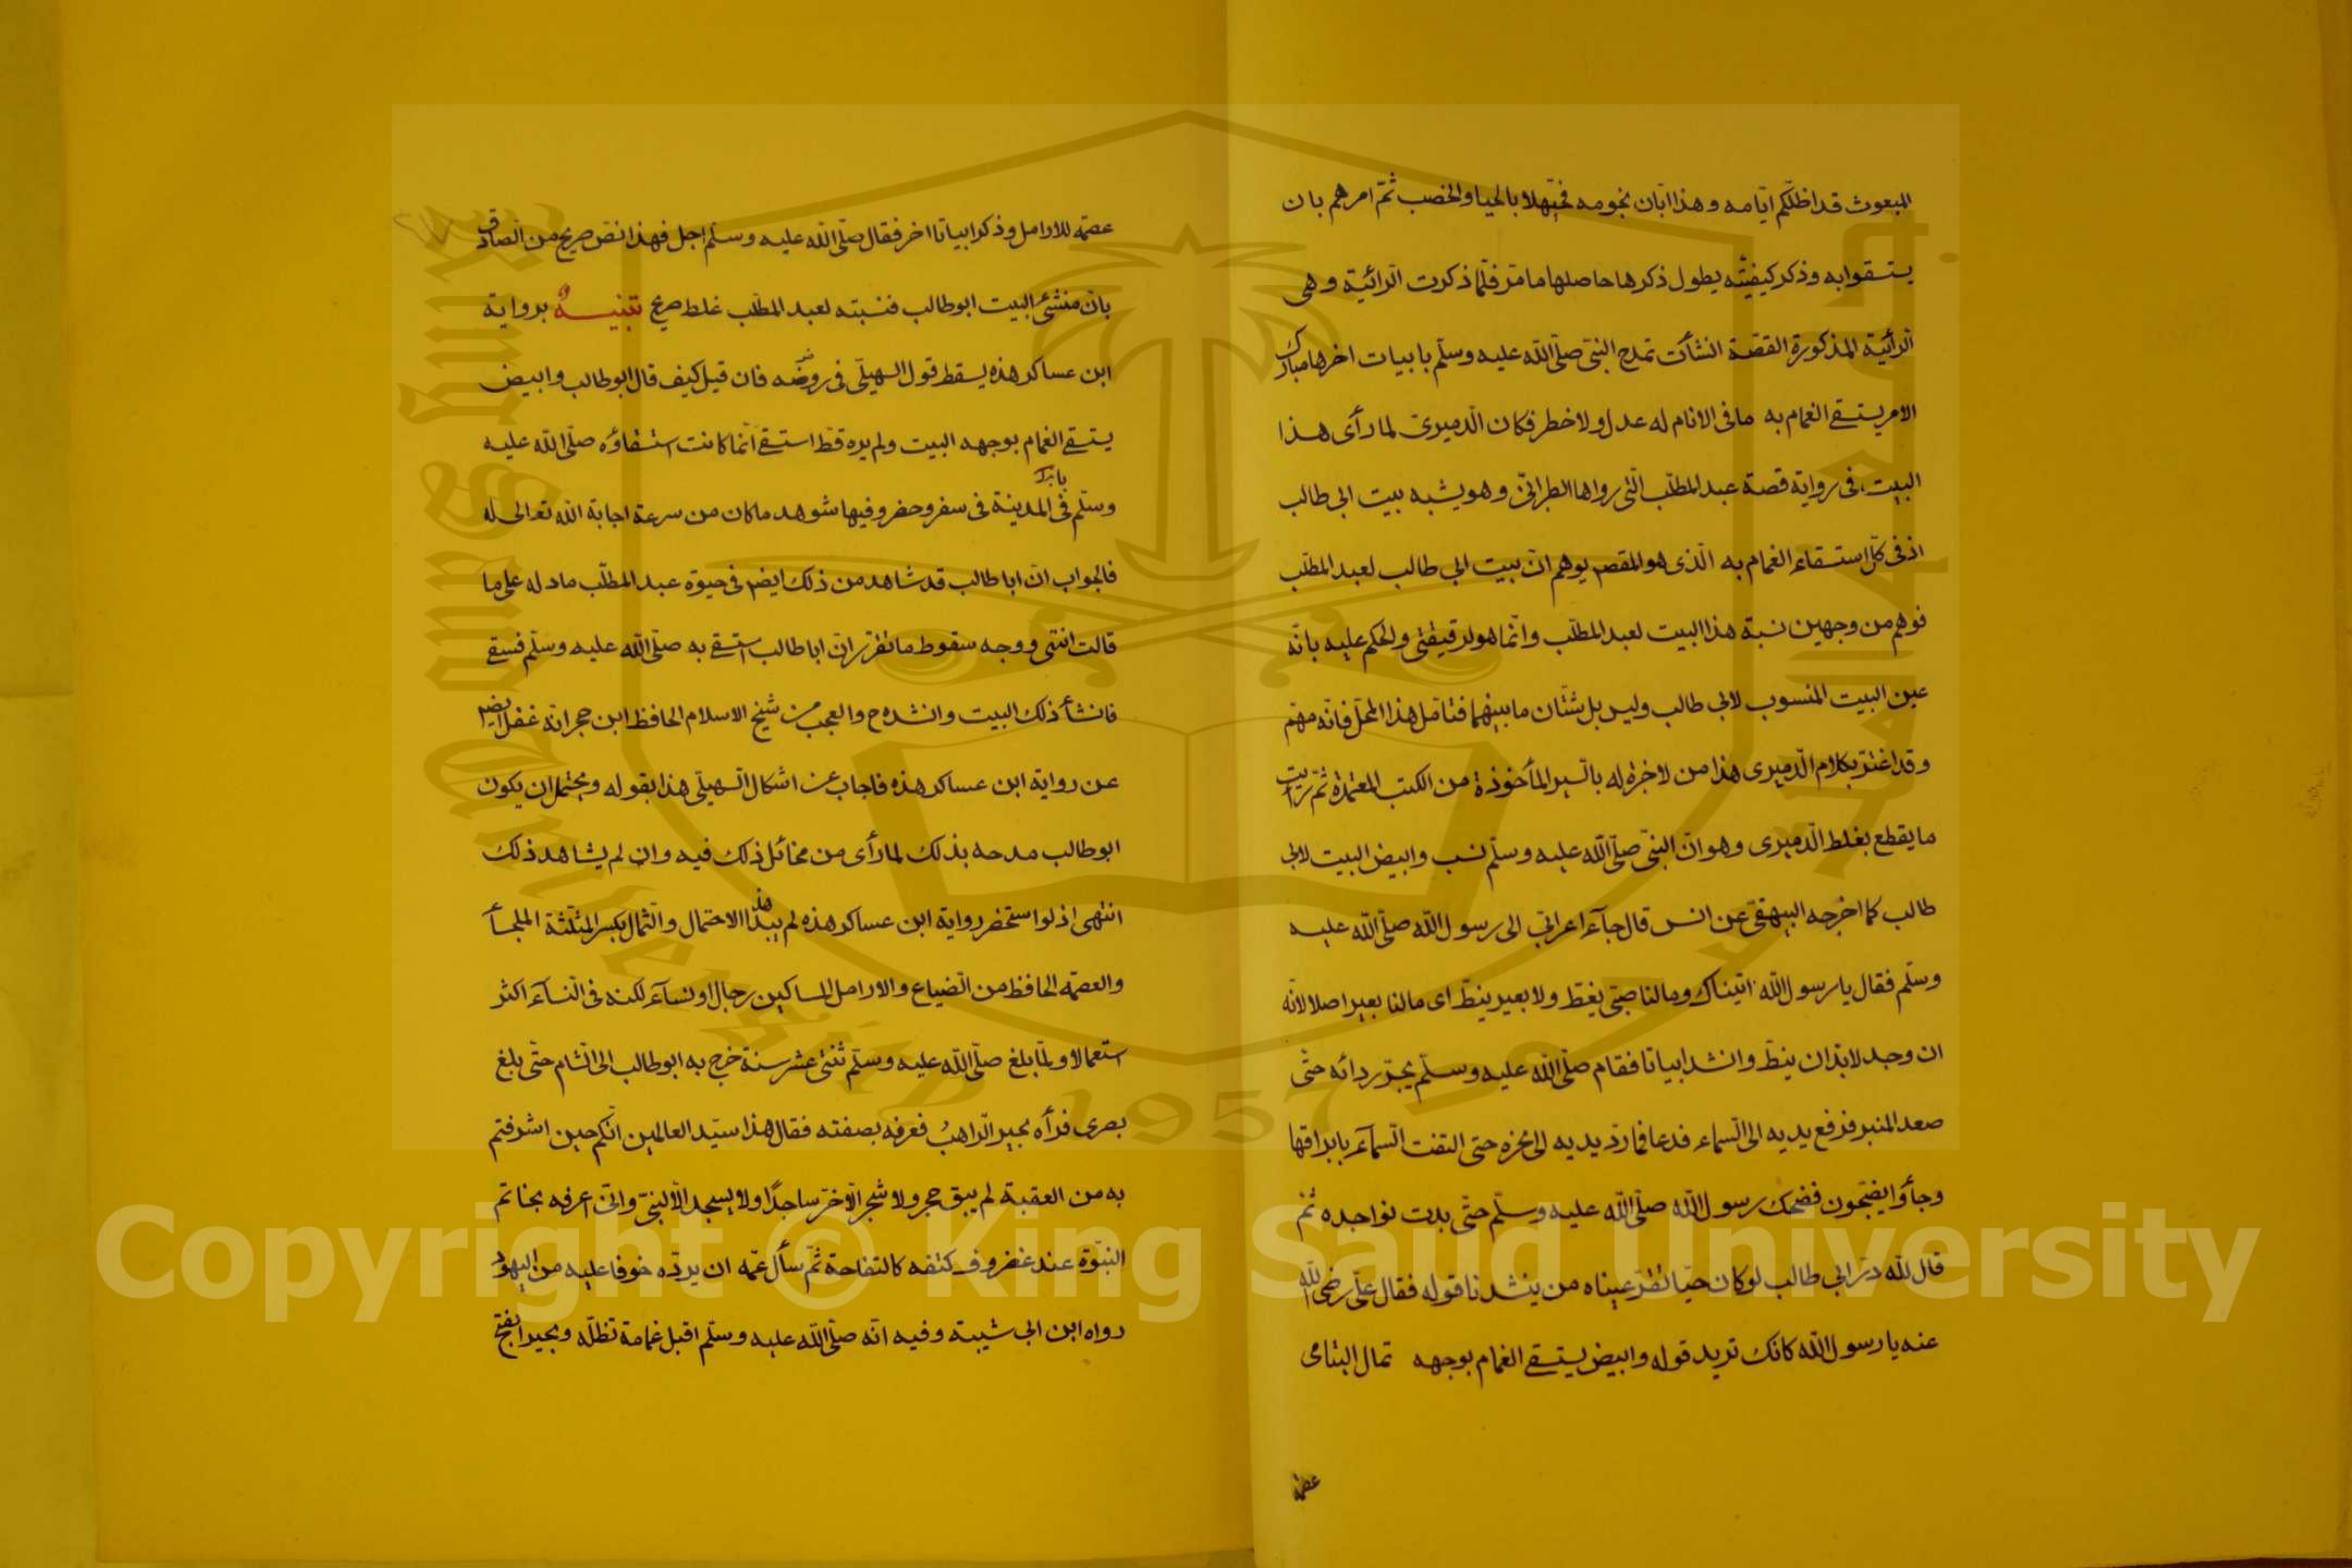 المبعوث قد اظلّكم ايّامه وهذا ابّان نجومه فحيّهلا بالحيا والخصب ثمّ امرهم بان
يستسقوا به وذكر كيفيّته يطول ذكرها حاصلها ما مرّ فلمّا ذكرت الرائيّة وهى
الرائيّة المذكورة القصّة انشأت تمدح النبىّ صلّى الله عليه وسلّم بابيات اخرها مبارك
الامر يستسقى الغمام به ما فى الانام له عدل ولا خطر فكان الدميرىّ لما رأى هذا
البيت فى رواية قصة عبد المطلّب الّتى رواها الطبرانىّ وهو يشبه بيت ابى طالب
اذ فى كلّ استسقاء الغمام به الّذى هو المقصد يوهم انّ بيت ابى طالب لعبد المطلّب
فوهم من وجهين نسبة هذا البيت لعبد المطلّب وانّما هو لرقيقة والحكم عليه بانّه
عين البيت المنسوب لابى طالب وليس بل شتّان ما بينهما فتامّل هذا المحلّ فانّه مهمّ
وقد اغترّ بكلام الدميرى هذا من لا خبرة له بالسير المأخوذة من الكتب المعتمدة ثمّ رأيت
ما يقطع بغلط الدميرى وهو انّ النبىّ صلّى الله عليه وسلّم نسب وابيض البيت لابى
طالب كما اخرجه البيهقىّ عن انس قال جآء اعرابىّ الى رسول الله صلّى الله عليه
وسلّم فقال يا رسول الله اتيناك وما لنا صبىّ يغطّ ولا بعير ينطّ اى ما لنا بعير اصلا لانّه
ان وجد لا بدّ ان ينطّ وانشد ابياتا فقام صلّى الله عليه وسلّم يجرّ ردائه حتّى
صعد المنبر فرفع يديه الى السماء فدعا فما ردّ يديه الى نحره حتى التفت السمآء بابراقها
وجأوا يضجّون فضحك رسول الله صلّى الله عليه وسلّم حتّى بدت نواجده ثم
قال لله درّ ابى طالب لو كان حيّا لقرّ عيناه من ينشدنا قوله فقال علىّ رضى الله
عنه يا رسول الله كانك تريد قوله وابيض يستسقى الغمام بوجهه ثمال اليتامى
عصمة
عصمة للارامل وذكر ابياتا اخر فقال صلّى الله عليه وسلّم اجل فهذا نصّ صريح من الصادق
بان منشئ البيت ابو طالب فنسبته لعبد المطلّب غلط صريح تنبيه برواية
ابن عساكر هذه يسقط قول السهيلّى فى روضه فان قيل كيف قال ابو طالب وابيض
يستسقى الغمام بوجهه البيت ولم يره قطّ استسقى انّما كانت استسقاؤه صلّى الله عليه
وسلّم فى المدينة فى سفر وحضر وفيها شوهد ما كان من سرعة اجابة الله تعالى له
فالجواب انّ ابا طالب قد شاهد من ذلك ايض فى حيوة عبد المطلّب ما دله على ما
قالت انتهى ووجه سقوط ما تقرّر انّ ابا طالب استسقى به صلّى الله عليه وسلّم فسقى
فانشأ ذلك البيت وانشده ح والعجب من شيخ الاسلام الحافظ ابن حجر انّه غفل ايض
عن رواية ابن عساكر هذه فاجاب عن اشكال السهيلى هذا بقوله ويحتمل ان يكون
ابو طالب مدحه بذلك لما رأى من مخائل ذلك فيه وان لم يشاهد ذلك
انتهى اذ لو استحضر رواية ابن عساكر هذه لم يبد هذا الاحتمال والثمال بكسر المثلّثة الملجأ
والعصمة الحافظ من الضياع والارامل المساكين رجال او نسآء لكنه فى النسآء اكثر
استعمالا ولمّا بلغ صلّى الله عليه وسلّم ثنتى عشر سنة خرج به ابو طالب الى الشام حتّى بلغ
بصرى فرأه بحير الراهب فعرفه بصفته فقال هذا سيّد العالمين انّكم حين اشرفتم
به من العقبة لم يبق حجر ولا شجر الّا خرّ ساجدًا ولا يسجد الّا لنبىّ وانّى اعرفه بخاتم
النبوّة عند غضروف كتفه كالتفاحة ثمّ سأل عمّه ان يردّه خوفا عليه من اليهود
رواه ابن ابى شيبة وفيه انّه صلّى الله عليه وسلّم اقبل غمامة تظلّه وبحيرا بفتح
Copyright © King Saud University
King Saud University
1957